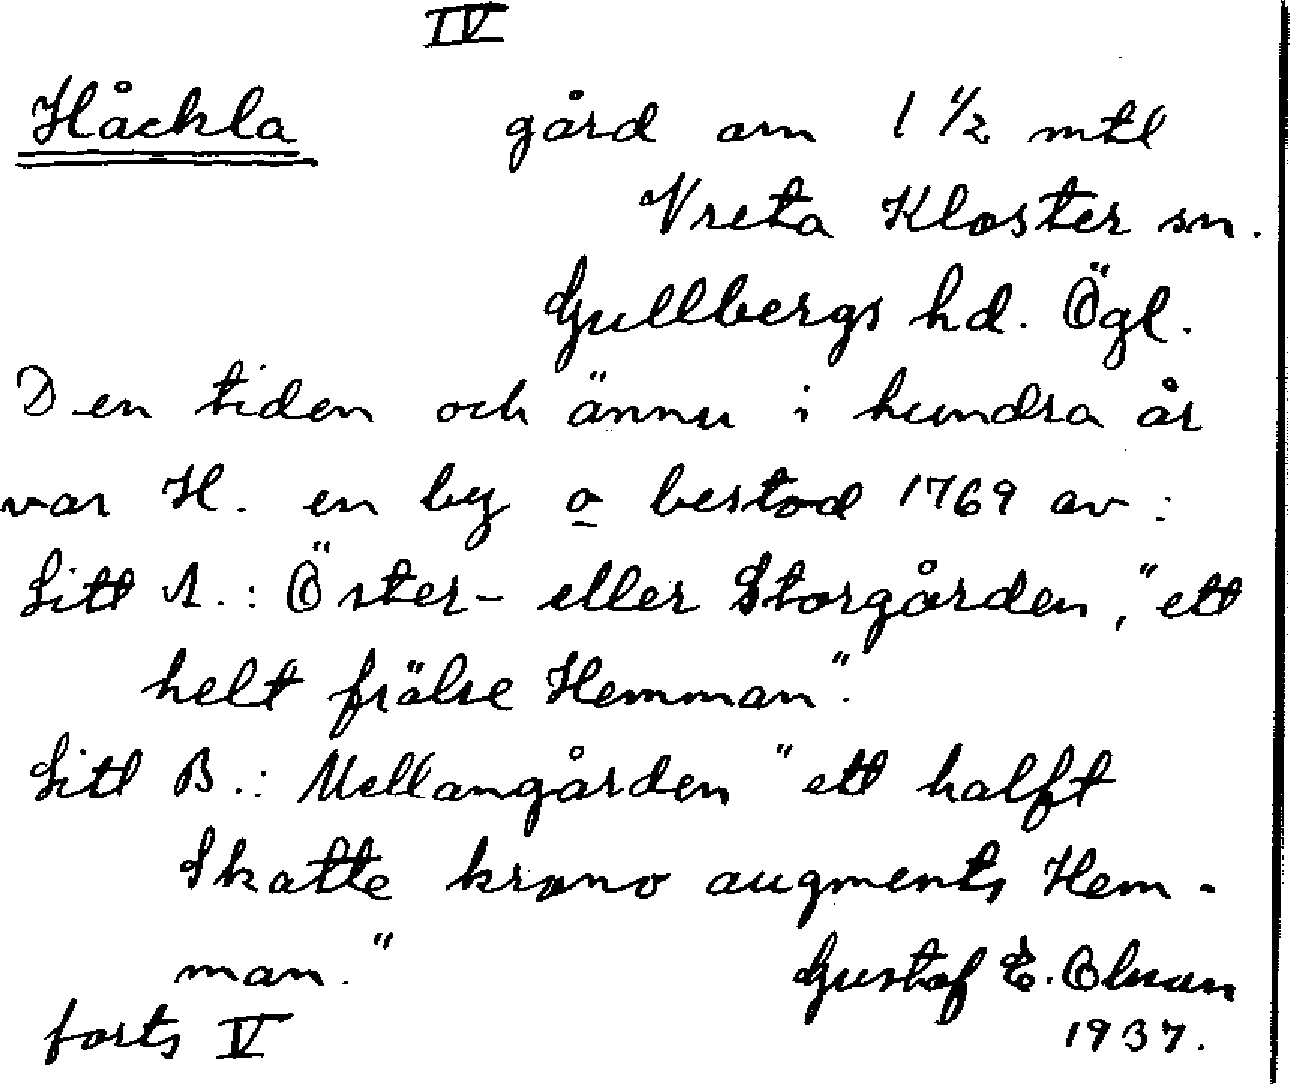 IV
Håckla gård om 1 1/2 mtl
Vreta Kloster sn.
Gullbergs hd. Ögl.
Den tiden och ännu i hundra år
var H. en by o bestod 1769 av:
Litt A.: Öster- eller Storgården, "ett
helt frälse Hemman".
Litt B.: Mellangården "ett halft
Skatte krono augments Hem-
man."
Gustaf E. Olsson
forts V
1937.